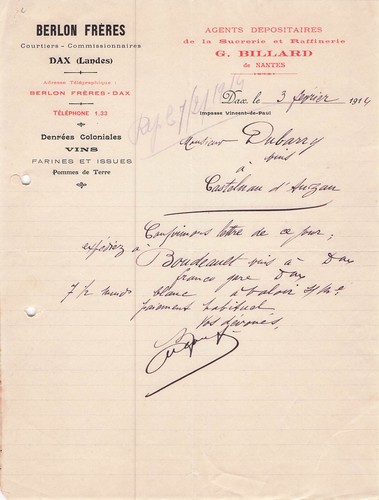 BERLON FRÈRES
Courtiers - Commissionnaires
DAX (Landes)
Adresse Télégraphique :
BERLON FRÈRES-DAX
TÉLÉPHONE 1.33
Denrées Coloniales
VINS
FARINES ET ISSUES
Pommes de Terre
AGENTS DÉPOSITAIRES
de la Sucrerie et Raffinerie
G. BILLARD
de NANTES
Dax, le 3 février 1914
Impasse Vincent-de-Paul
Monsieur Dubarry
vins
à
Castelnau d'Auzan
Confirmons lettre de ce jour ;
expédiez à
Boudeault vins à Dax
franco gare Dax
7 blanc à valoir
paiement habituel
Vos dévoués